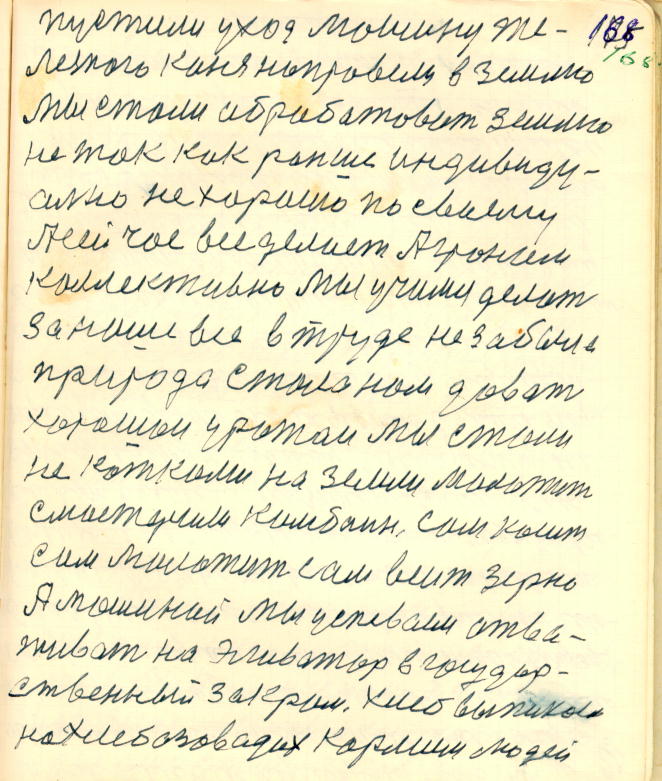 пустили уход машину же- 168
лезного коня направели в землю 168
мы стали обработоват землю
не так как ранше индивиду-
ално не хорошо по своему
А сей час все делает Агроном
коллективно мы учими делат
за наше все в труде не забыле
природа стала нам доват
хорошои урожаи мы стали
не котками на земли молотит
смастерили комбаин, сам косит
сам молотит сам веит зерно
А машиной мы успеваем отва-
живат на Эливатор в госудор-
ственный закром. Хлеб выпикаем
на хлебозовадах кормим людей